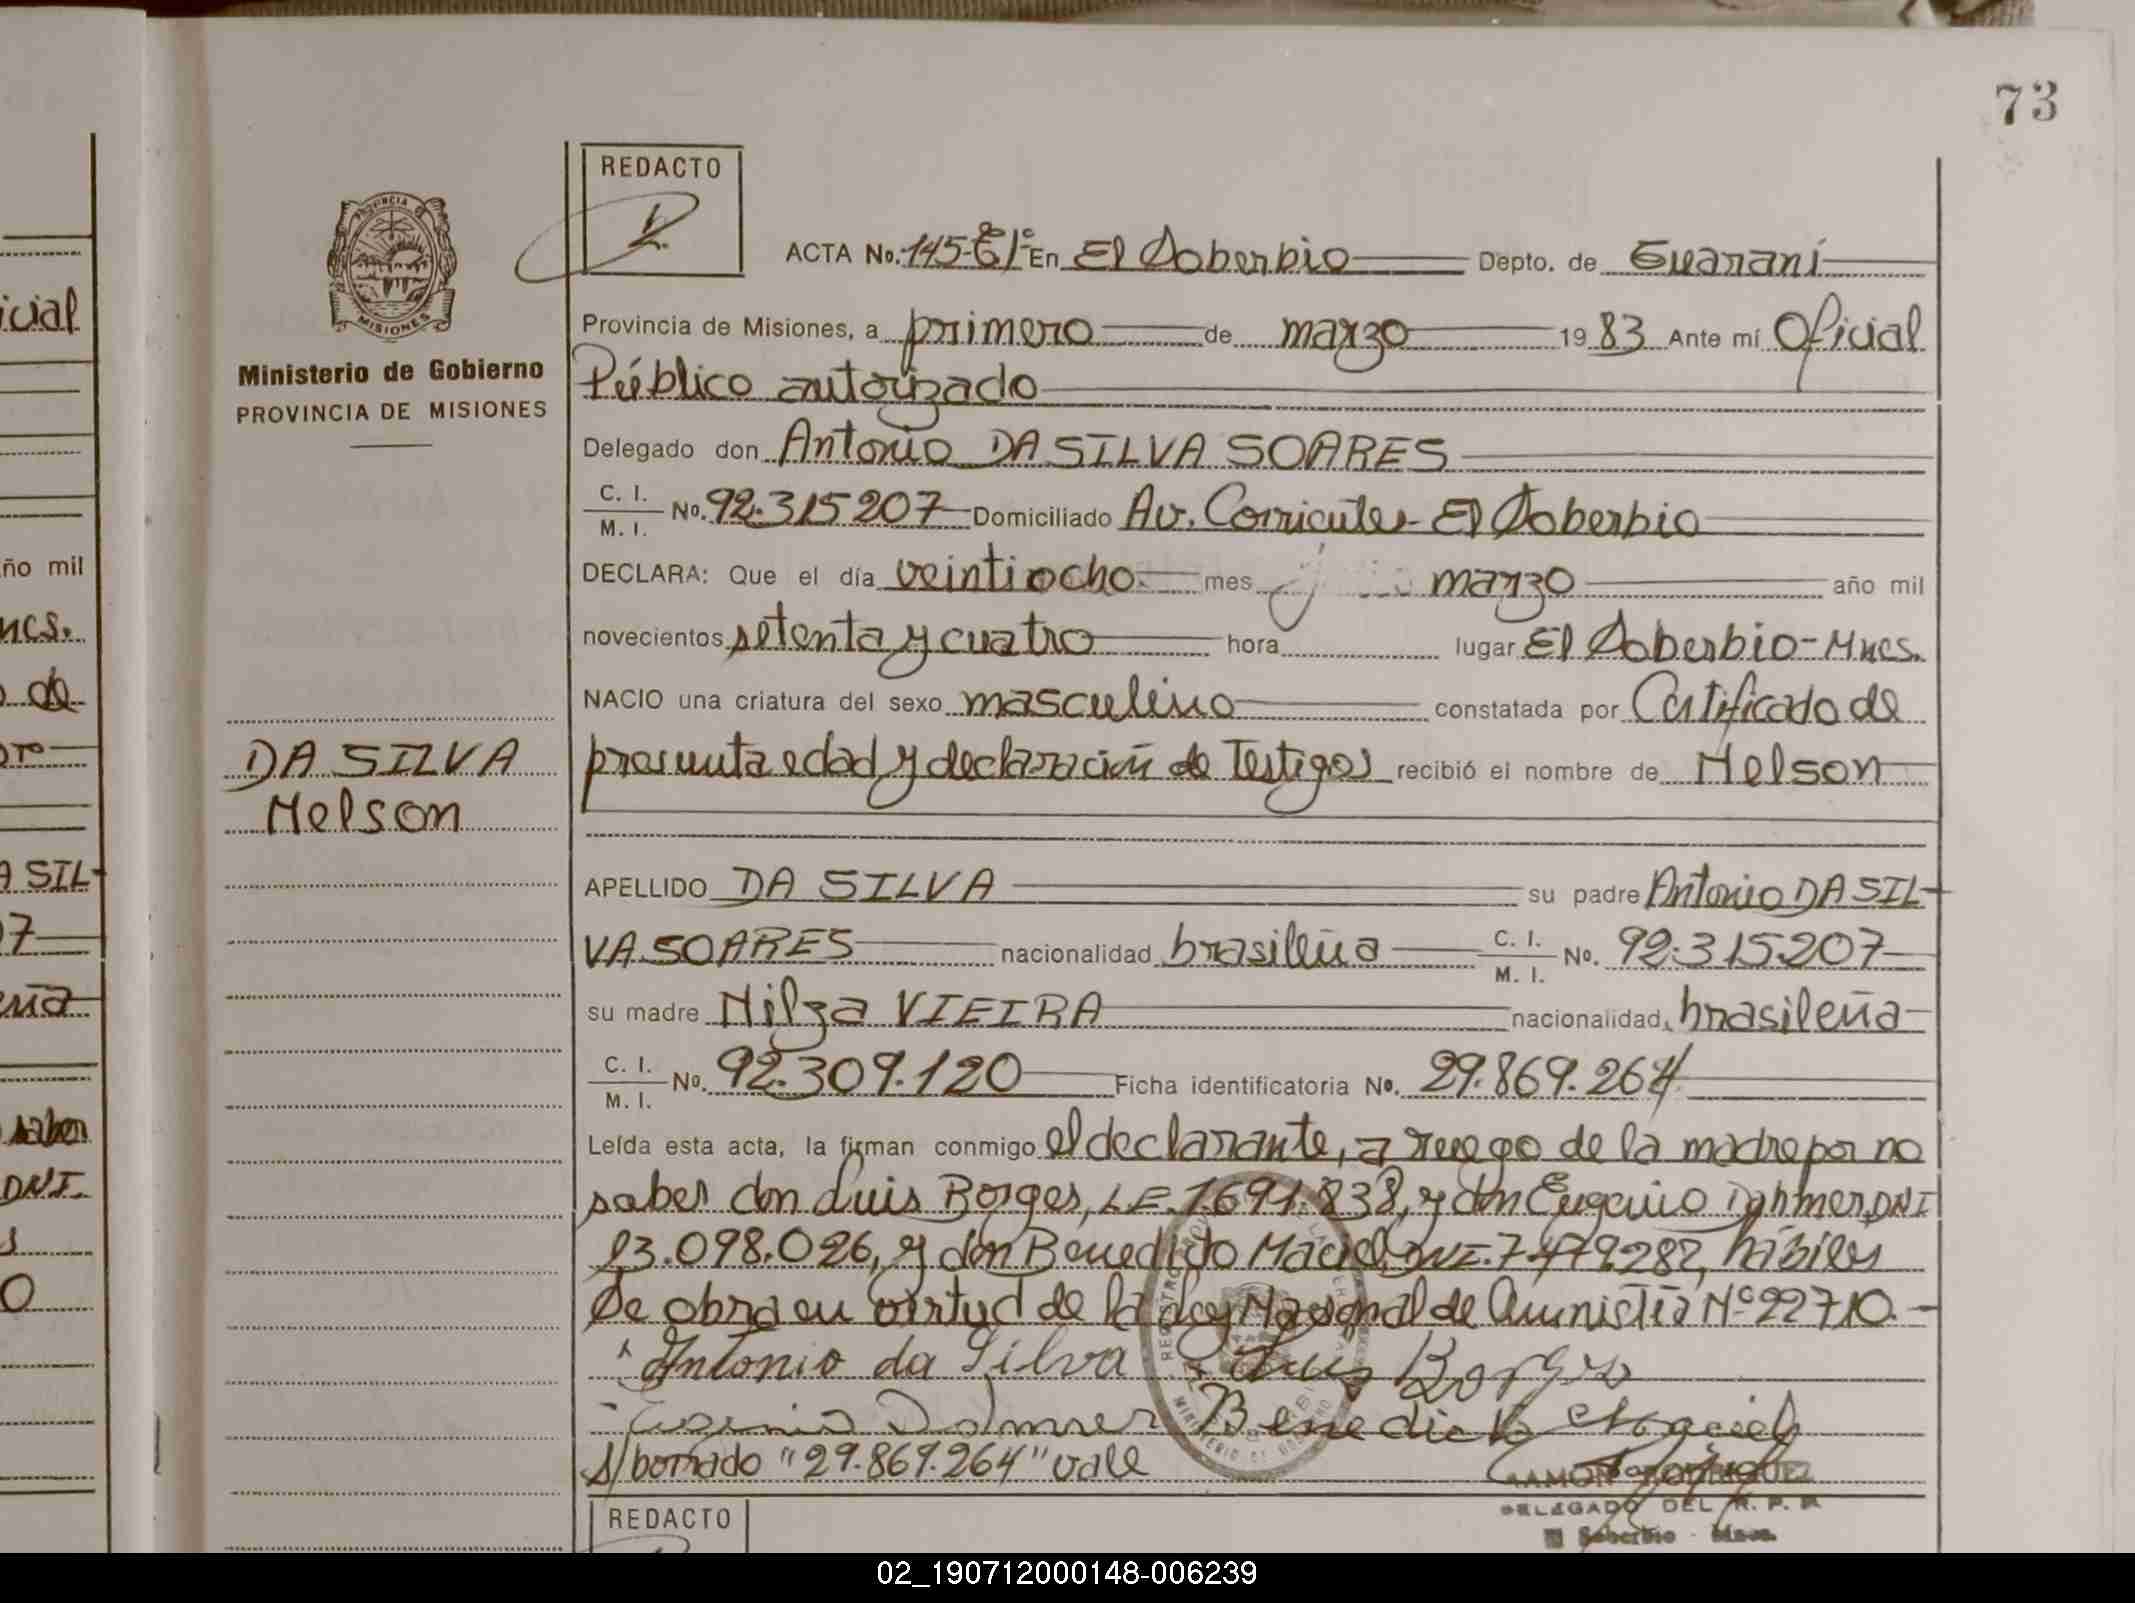 73
REDACTO
ACTA No. 145- En El Soberbio Depto. de Guaraní
Provincia de Misiones, a primero de marzo 19 83 Ante mí Oficial
Público autorizado
Delegado don Antonio DA SILVA SOARES
C. I.
M. I. No. 92.315207 Domiciliado Av. Corrientes El Soberbio
DECLARA: Que el día veintiocho mes marzo año mil
novecientos setenta y cuatro hora lugar El Soberbio-Mnes.
NACIO una criatura del sexo masculino constatada por Certificado de
presunta edad y declaración de Testigos recibió el nombre de Nelson
APELLIDO DA SILVA su padre Antonio DA SIL-
VA SOARES nacionalidad brasileña C. I. M. I. No. 92.315207
su madre Nilza VIEIRA nacionalidad brasileña
C. I.
M. I. No. 92.309.120 Ficha identificatoria No. 29.869.264
Leída esta acta, la firman conmigo el declarante, a ruego de la madre por no
saber don Luis Borges, L.E. 1.691.838, y don Eugenio Dahmer DNI
13.098.026, y don Benedicto Maciel, DNI. 7.479.282, hábiles
Se obra en virtud de la Ley Nacional de Amnistía Nº 22710.-
Antonio da Silva Luis Borges
Eugenio Dahmer Benedicto Maciel
S/borrado "29.869.264" vale
RAMON RODRIGUEZ
DELEGADO DEL R. P. P.
El Soberbio - Mnes.
REDACTO
PROVINCIA DE
MISIONES
Ministerio de Gobierno
PROVINCIA DE MISIONES
DA SILVA
Nelson
icial
ño mil
ncs.
de
A SIL-
7
saber
DNI.
0
02_190712000148-006239